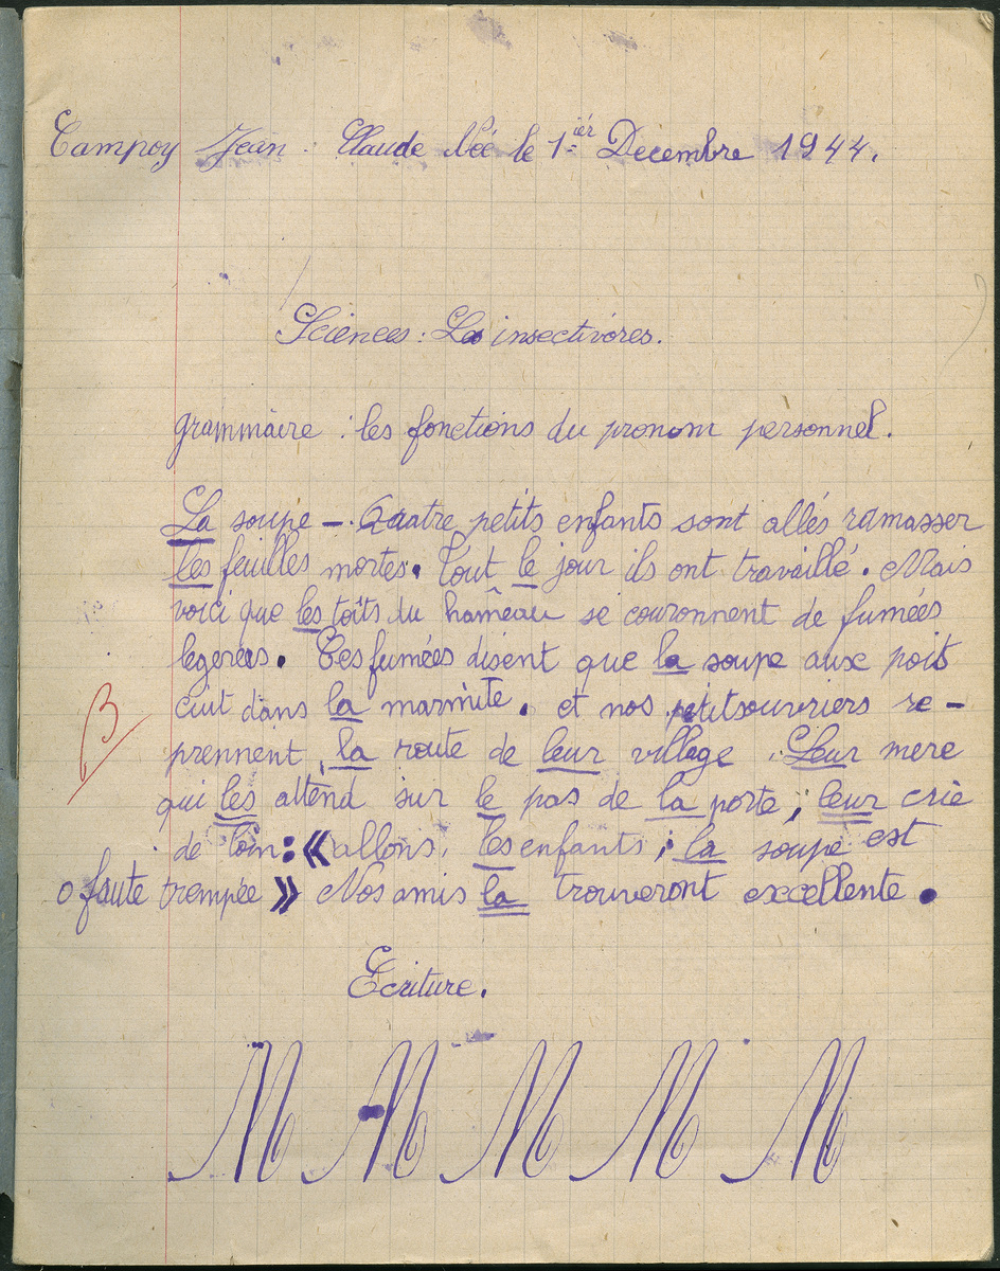 Campoy Jean-Claude Née le 1ièr Decembre 1944.
Sciences : Les insectivores.
grammaire : les fonctions du pronom personnel.
La soupe – . Quatre petits enfants sont allés ramasser
les feuilles mortes. Tout le jour ils ont travaillé. Mais
voici que les toits du hâmeau se couronnent de fumées
legerées. Ces fumées disent que la soupe aux pois
cuit dans la marmite. et nos petitsouvriers re-
prennent, la route de leur village. Leur mere
qui les attend sur le pas de la porte ; leur crie
de loin : « allons, les enfants ; la soupe est
0 faute trempée » Nos amis la trouveront excellente.
B
Ecriture.
M M M M M